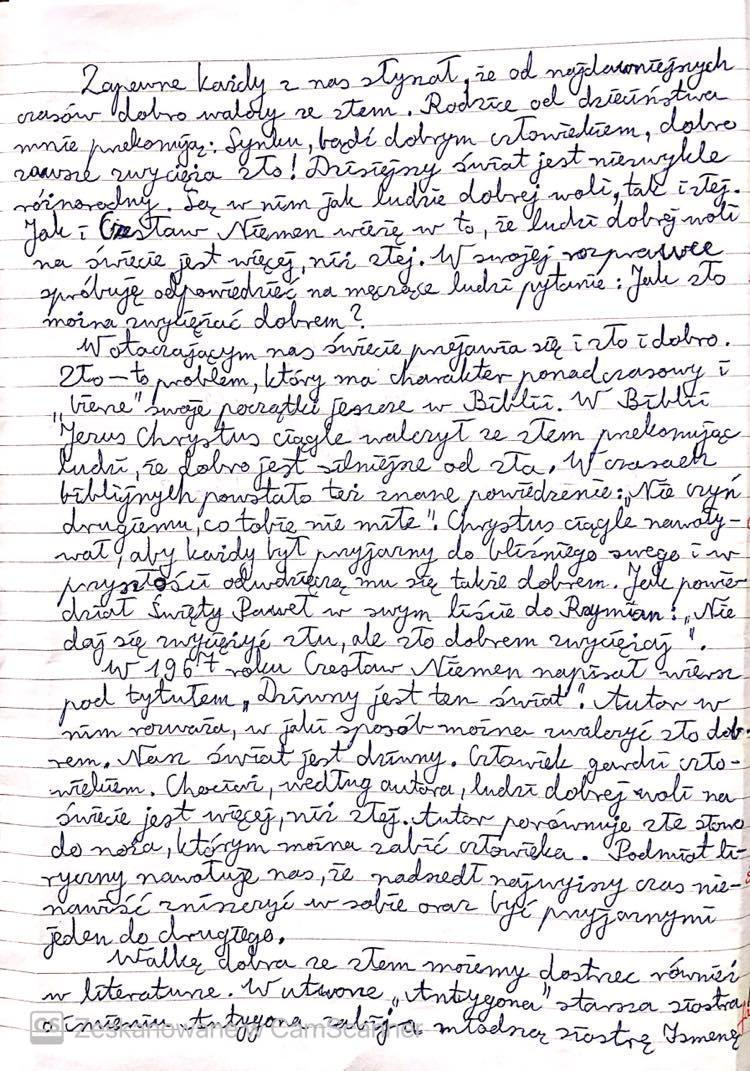 Zapewne każdy z nas słyszał, że od najdawniejszych
czasów dobro walczy ze złem. Rodzice od dzieciństwa
mnie przekonują: Synku, bądź dobrym człowiekiem, dobro
zawsze zwycięża zło! Dzisiejszy świat jest niezwykle
różnorodny. Są w nim jak ludzie dobrej woli, tak i złej.
Jak i Czesław Niemen wierzę w to, że ludzi dobrej woli
na świecie jest więcej, niż złej. W swojej rozprawce
spróbuję odpowiedzieć na męczące ludzi pytanie: Jak zło
można zwyciężać dobrem?
W otaczającym nas świecie przejawia się i zło i dobro.
Zło – to problem, który ma charakter ponadczasowy i
„bierze" swoje początki jeszcze w Biblii. W Biblii
Jezus Chrystus ciągle walczył ze złem przekonując
ludzi, że dobro jest silniejsze od zła. W czasach
biblijnych powstało też znane powiedzenie: „Nie czyń
drugiemu, co tobie nie miłe". Chrystus ciągle nawoły-
wał, aby każdy był przyjazny do bliźniego swego i w
przyszłości odwdzięczą mu się także dobrem. Jak powie-
dział Święty Paweł w swym liście do Rzymian: „Nie
daj się zwyciężyć złu, ale zło dobrem zwyciężaj".
W 1967 roku Czesław Niemen napisał wiersz
pod tytułem „Dziwny jest ten świat". Autor w
nim rozważa, w jaki sposób można zwalczyć zło dob-
rem. Nasz świat jest dziwny. Człowiek gardzi czło-
wiekiem. Chociaż, według autora, ludzi dobrej woli na
świecie jest więcej, niż złej. Autor porównuje złe słowo
do noża, którym można zabić człowieka. Podmiot li-
ryczny nawołuje nas, że nadszedł najwyższy czas nie-
nawiść zniszczyć w sobie oraz być przyjaznymi
jeden do drugiego.
Walkę dobra ze złem możemy dostrzec również
w literaturze. W utworze „Antygona" starsza siostra
o imieniu Antygona młodszą siostrę Ismenę
CS Zeskanowane w CamScanner